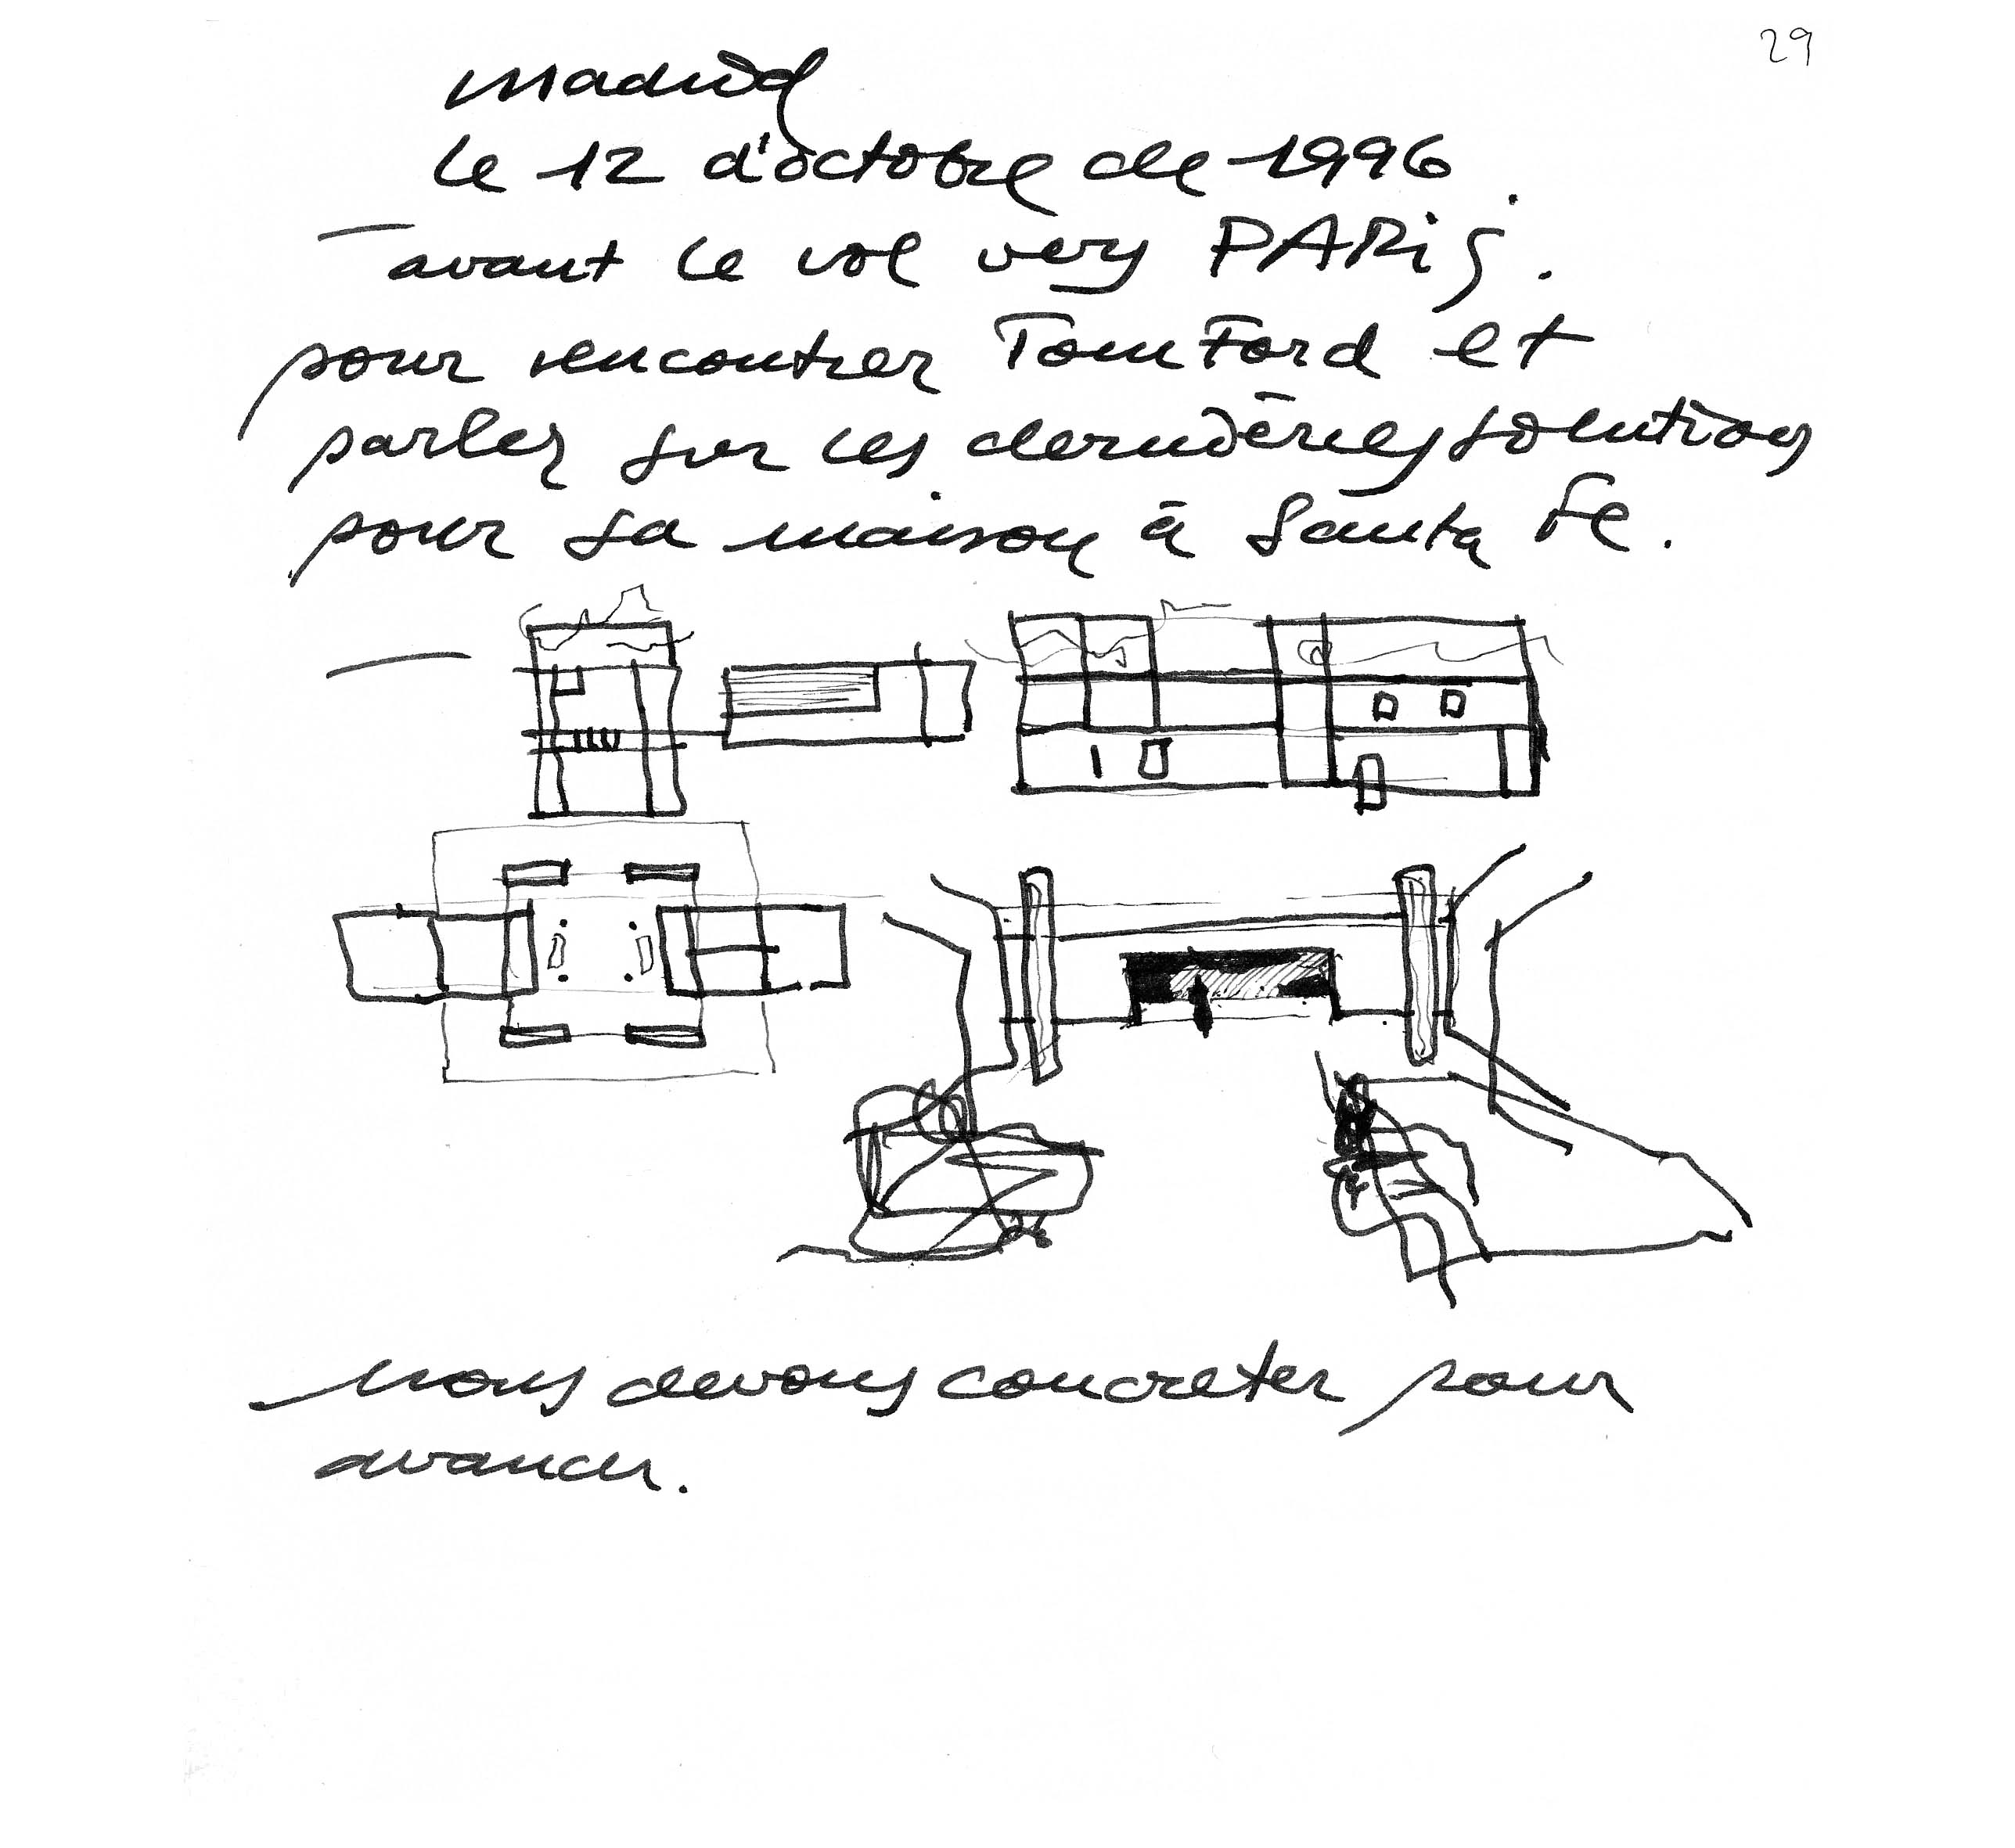 29
Madrid
le 12 d'octobre de 1996.
avant le vol vers PARiS.
pour rencontrer Tom Ford et
parler sur les dernières solutions
pour sa maison à Santa Fe.
nous devons concreter pour
avancer.